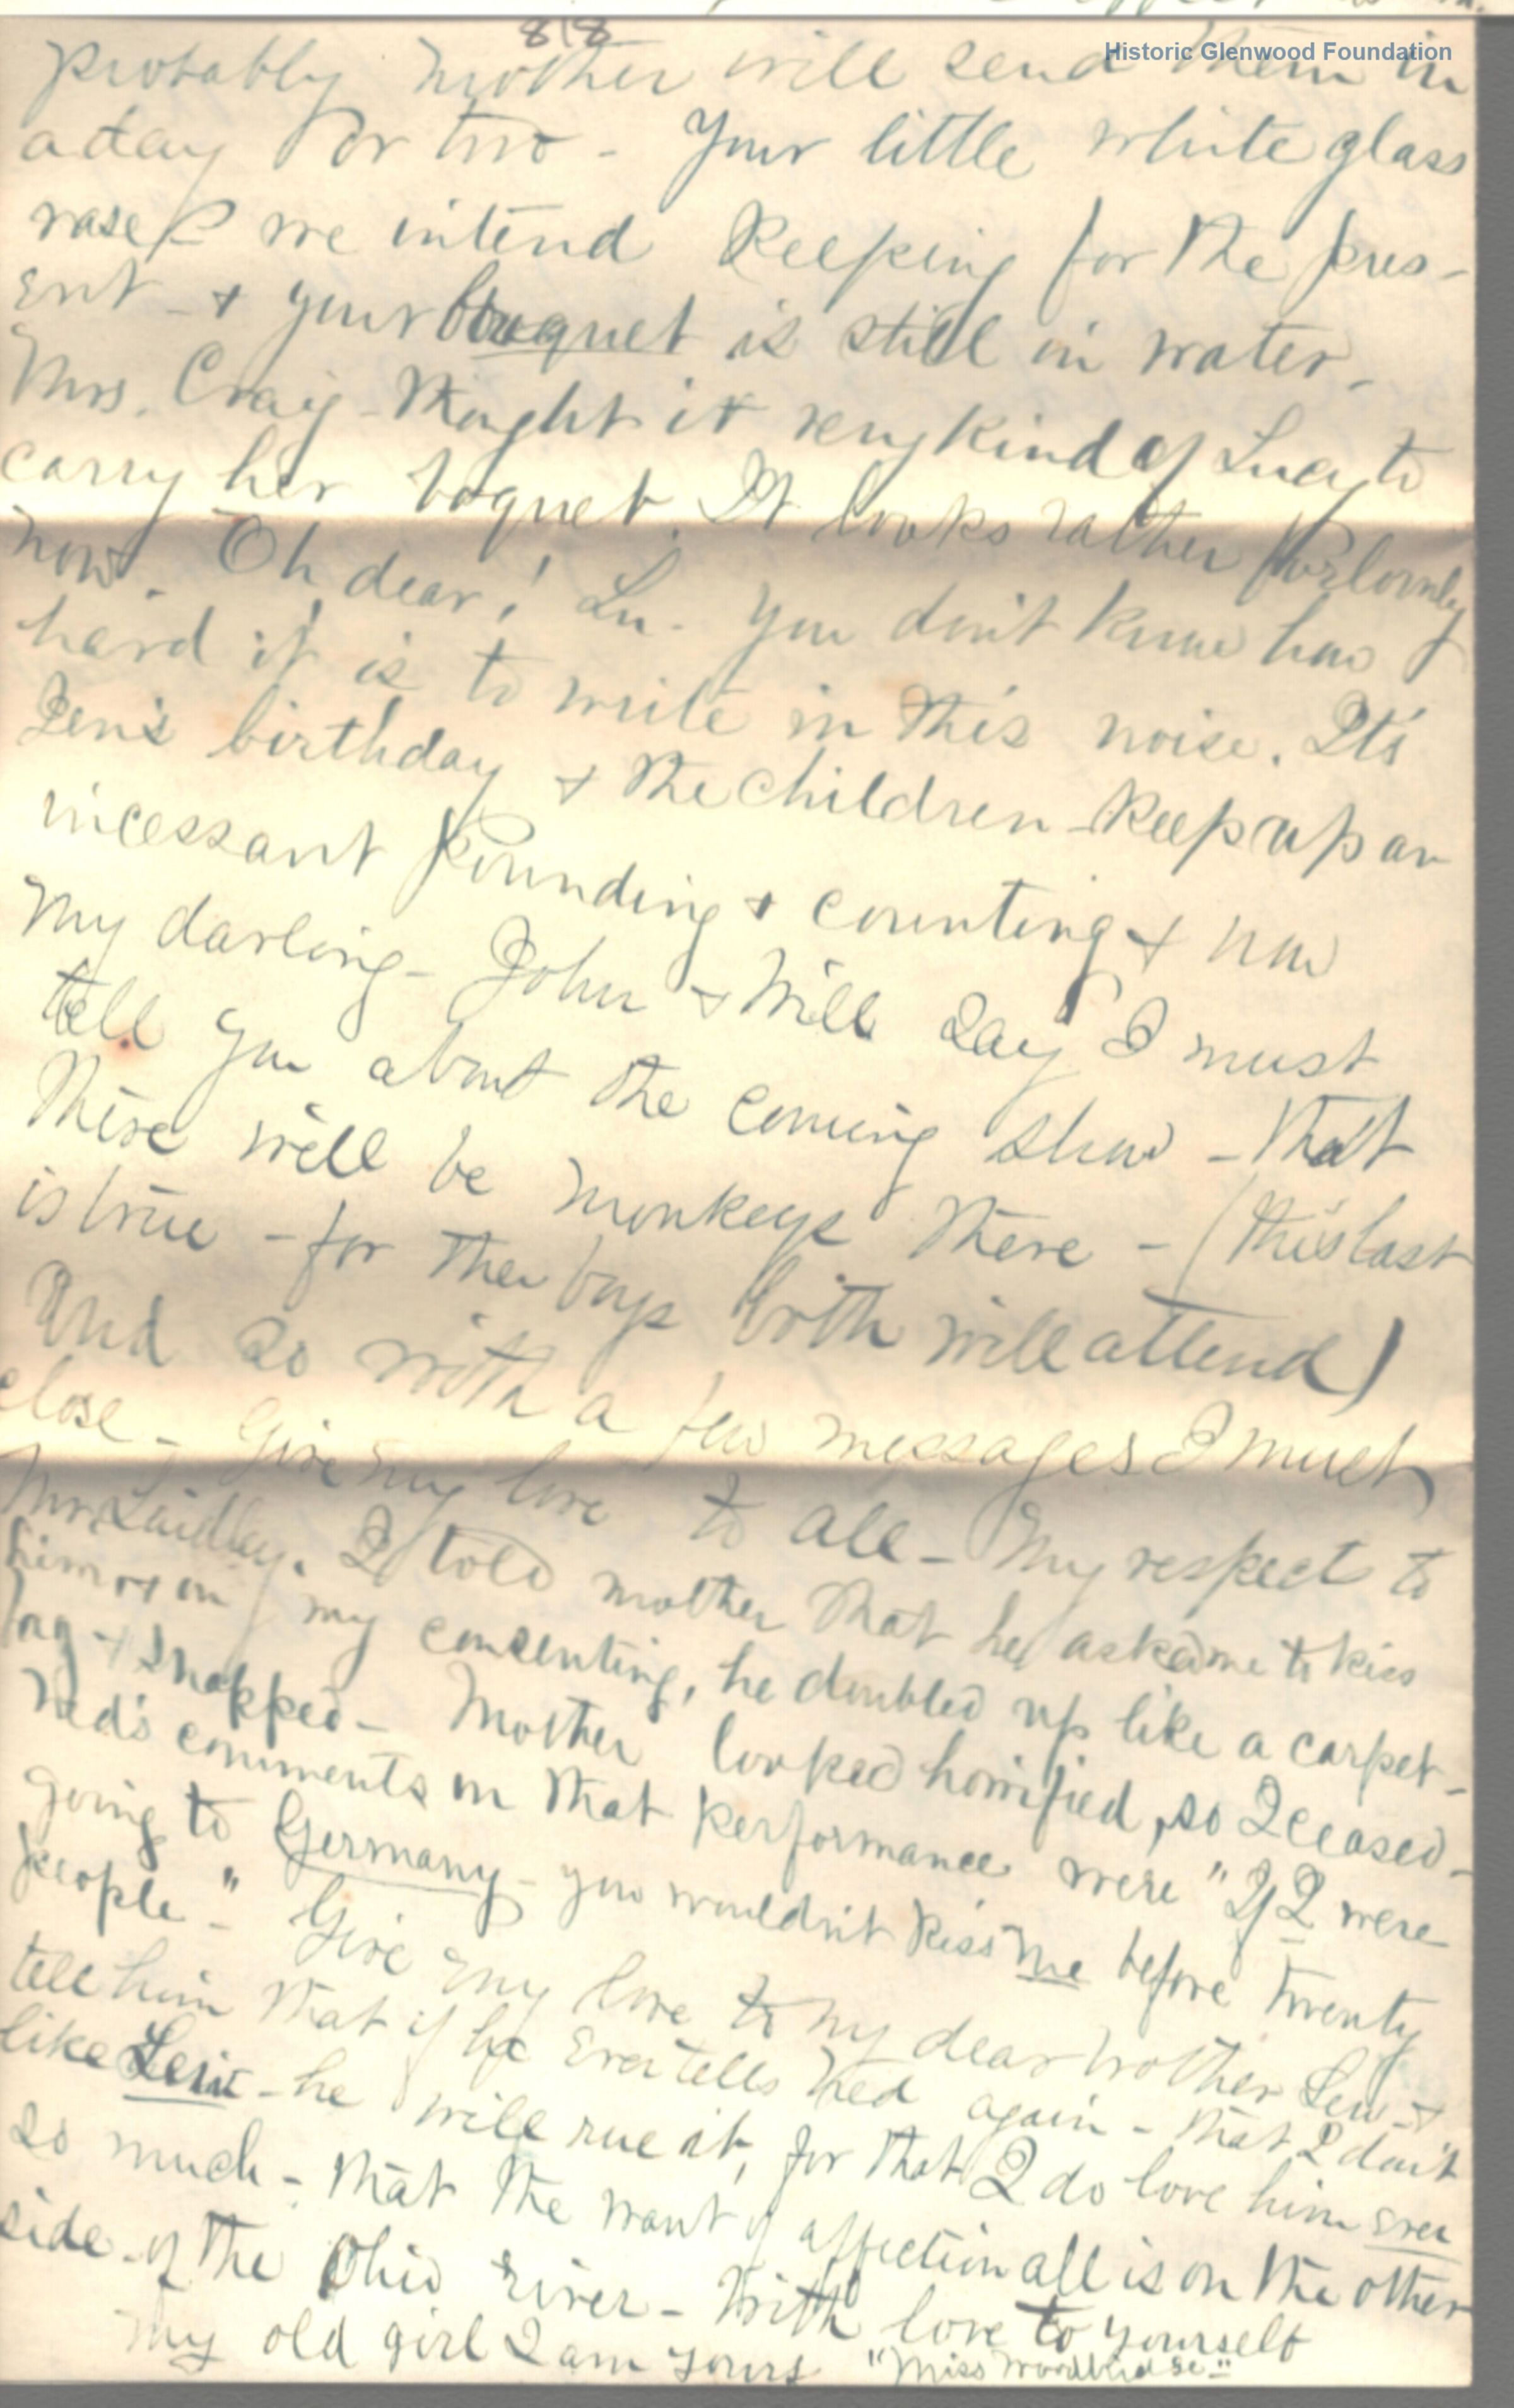 818
Historic Glenwood Foundation
probably mother will send them in
a day or two - Your little white glass
vase we intend keeping for the pres-
ent - + your boquet is still in water.
Mrs. Craig - thought it very kind of Lucy to
carry her boquet. It looks rather forlornly
now. Oh dear! Lu. You don't know how
hard it is to write in this noise. It's
Len's birthday + the children - keep up an
incessant pounding + counting + now
my darling - John + Will say I must
tell you about the coming show - that
there will be monkeys there - (this last
is true - for the boys both will attend)
And so with a few messages I must
close - Give my love to all - My respect to
Mr. Laidley. I told mother that he asked me to kiss
him + on my consenting, he doubled up like a carpet-
bag + snapped - Mother looked horrified, so I ceased -
Ned's comments on that performance were "If I were
going to Germany - you wouldn't kiss me before twenty
people" - Give my love to my dear brother Lew - +
tell him that if he ever tells Ned again - that I don't
like Lew - he will rue it, for that I do love him ever
so much - that the want of affection all is on the other
side - of the Ohio River - With love to yourself
my old girl I am yours "Miss Woodbridge"